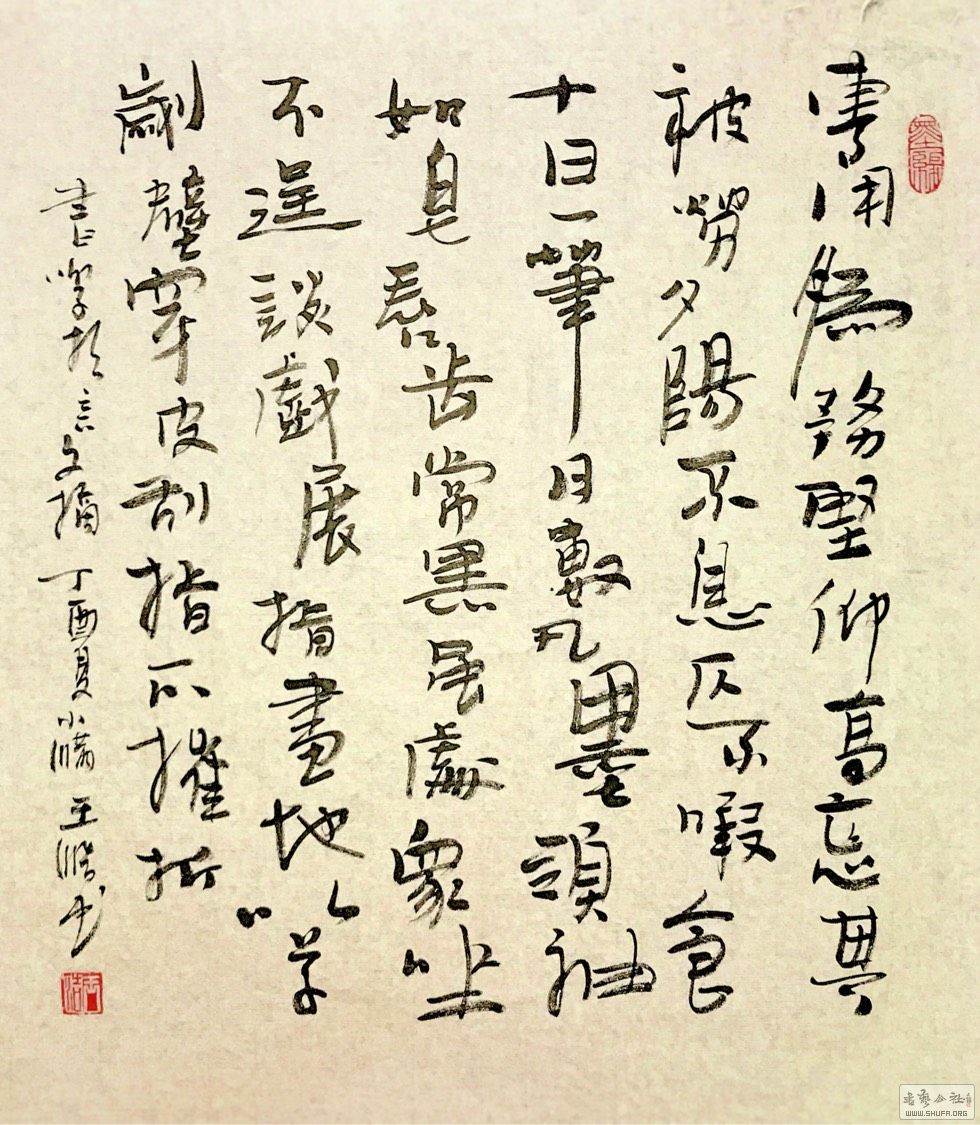 專用為務堅仰高忘其
被勞夕陽不息仄不暇食
十日一筆月數丸墨領袖
如皂唇齿常黑虽處眾坐
不遑談戲展指畫地以草
劌壁穿皮刮指爪摧折
文摘丁酉夏小滿王浩书
書藝公社
WWW.SHUFA.ORG